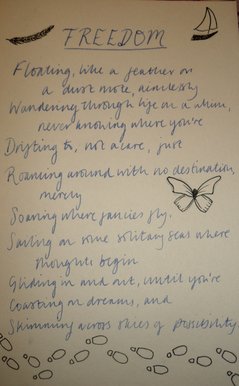 FREEDOM
Floating, like a feather or
a dust mote, aimlessly
Wandering through life on a whim,
never knowing where you're
Drifting to, not a care, just
Roaming around with no destination,
merely
Soaring where fancies fly.
Sailing on some solitary seas where
thoughts begin
Gliding in and out, until you're
Coasting on dreams, and
Skimming across skies of possibility